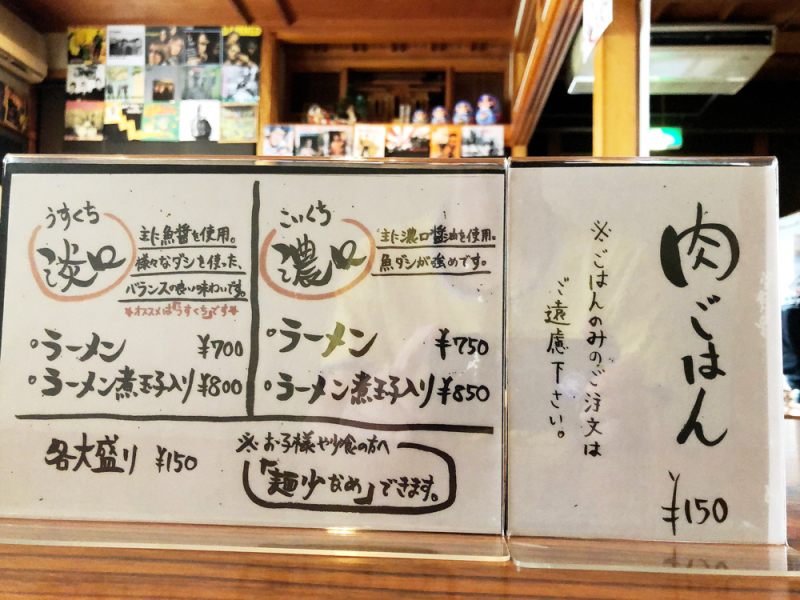 うすくち
淡口
主に魚醤を使用。
様々なダシを使った、
バランスの良い味わいです。
*オススメは「うすくち」です*
。ラーメン ¥700
。ラーメン煮玉子入り ¥800
こいくち
濃口
主に濃口醤油を使用。
魚ダシが強めです。
。ラーメン ¥750
。ラーメン煮玉子入り ¥850
各大盛り ¥150
※お子様や少食の方へ
「麺少なめ」できます。
肉ごはん
¥150
※ごはんのみのご注文は
ご遠慮下さい。